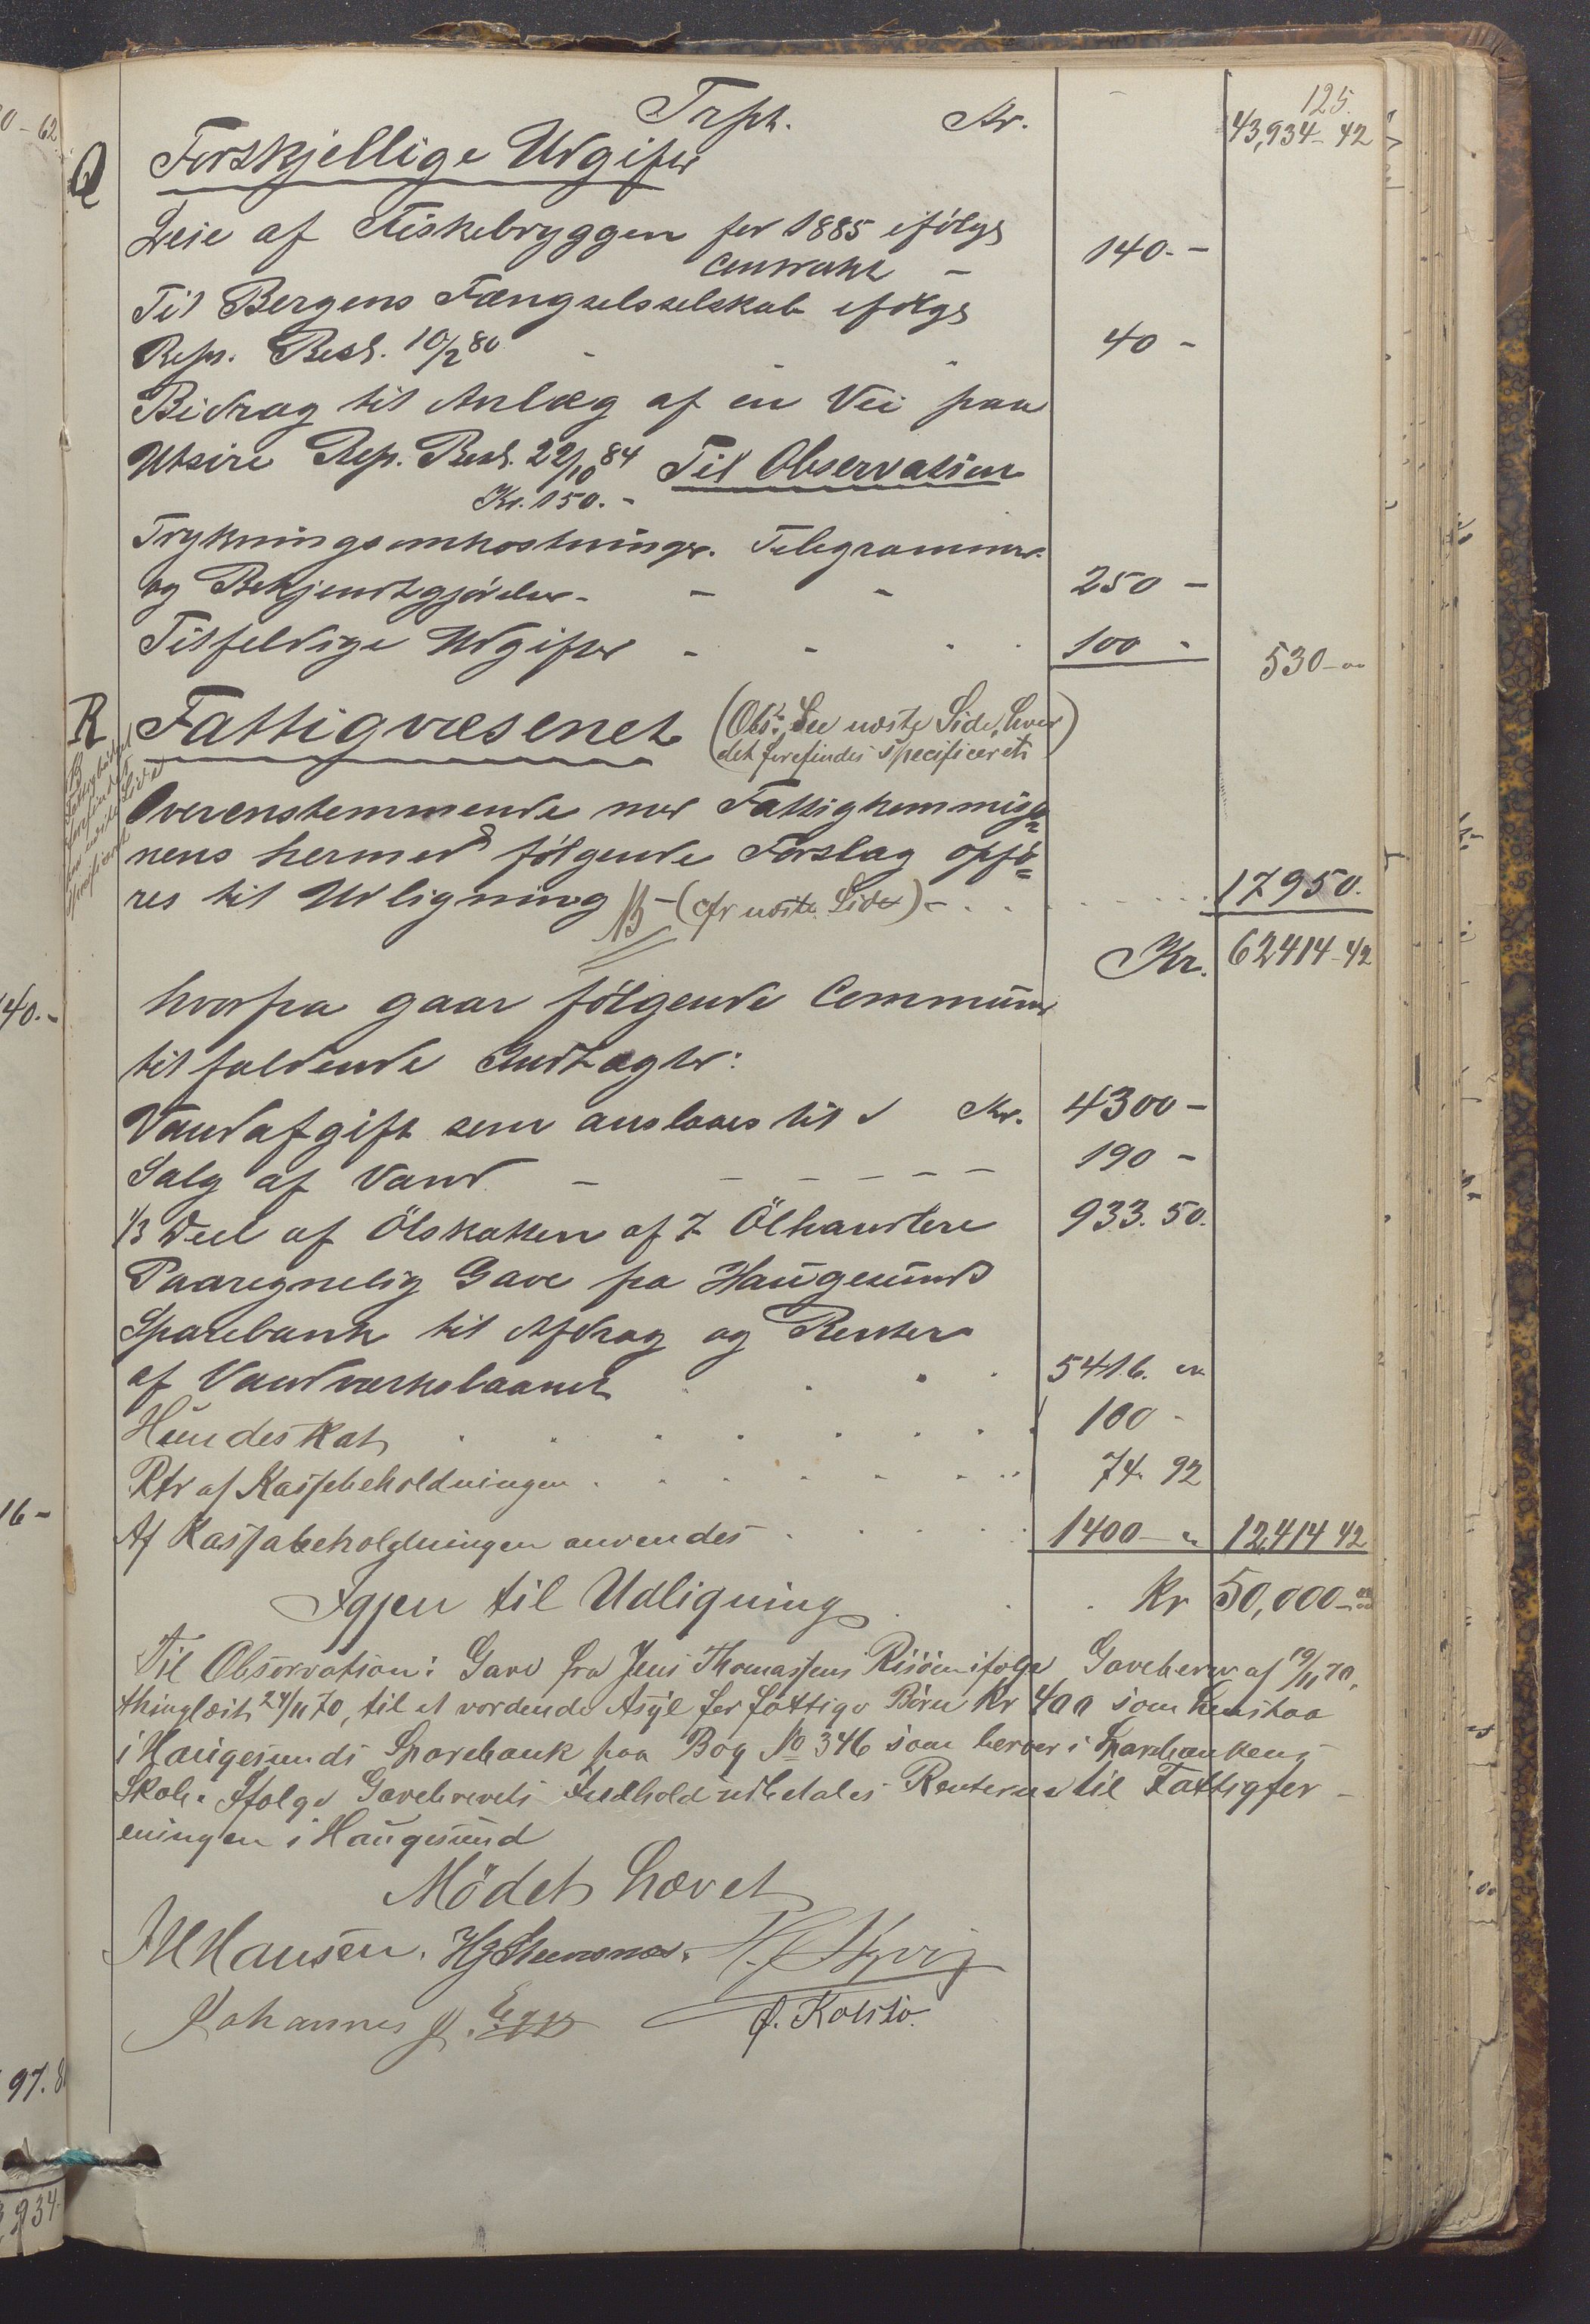 125
Trpt. Kr. 43,934-42
Q Forskjellige Udgifter
Leie af Fiskebryggen for 1885 ifölge
Contrakt - 140.-
Til Bergens Fængselsselskab ifölge
Repr. Besl. 10/2 80 - - - 40 -
Bidrag til Anlæg af en Vei paa
Utsire Rep. Besl. 22/10 84 Til Observation
Kr. 150.-
Trykningsomkostninger. Telegrammer
og Bekjendtgjörelser - - - 250 -
Tilfeldige Udgifter - - - - 100 - 530-00
R Fattigvæsenet (Obs. See næste Side, hvor
det forefindes specificeret)
Overensstemmende med Fattigkommisjo=
nens hermed fölgende Forslag opfö=
res til Udligning NB - (cfr næste Side) - . . . 17950.
Kr. 62414-42
hvorfra gaar fölgende Commünen
tilfaldende Indtægter:
Vandafgift som anslaaes til Kr. 4300 -
Salg af Vand - - - - - - 190 -
1/3 Deel af Ölskatten af 7 Ölhandlere 933.50.
Paaregnelig Gave fra Haügesunds
Sparebank til Afdrag og Renter
af Vandværkslaanet . . . . 5416. 00
Hundeskat . . . . . . . . 100 -
Rtr af Kassebeholdningen . . . . . . . 74. 92
Af Kassabeholdningen anvendes . . . . . 1400 - " 12,414 42
Igjen til Udligning . . . Kr 50,000-00
Til Observation: Gave fra Jens Thomassens Risöen ifolge Gavebrev af 19/11 70,
thinglæst 24/11 70, til et vordende Asyl for fattige Börn Kr 400 som henstaa
i Haugesunds Sparebank paa Bog No 346 som beror i Sparebankens
Skab. Ifolge Gavebrevets Indhold udbetales Renterne til Fattigfor-
eningen i Haugesund
Mödet hævet
JHHansen. H. Styvig
Johannes J. Ö. Kolstö.